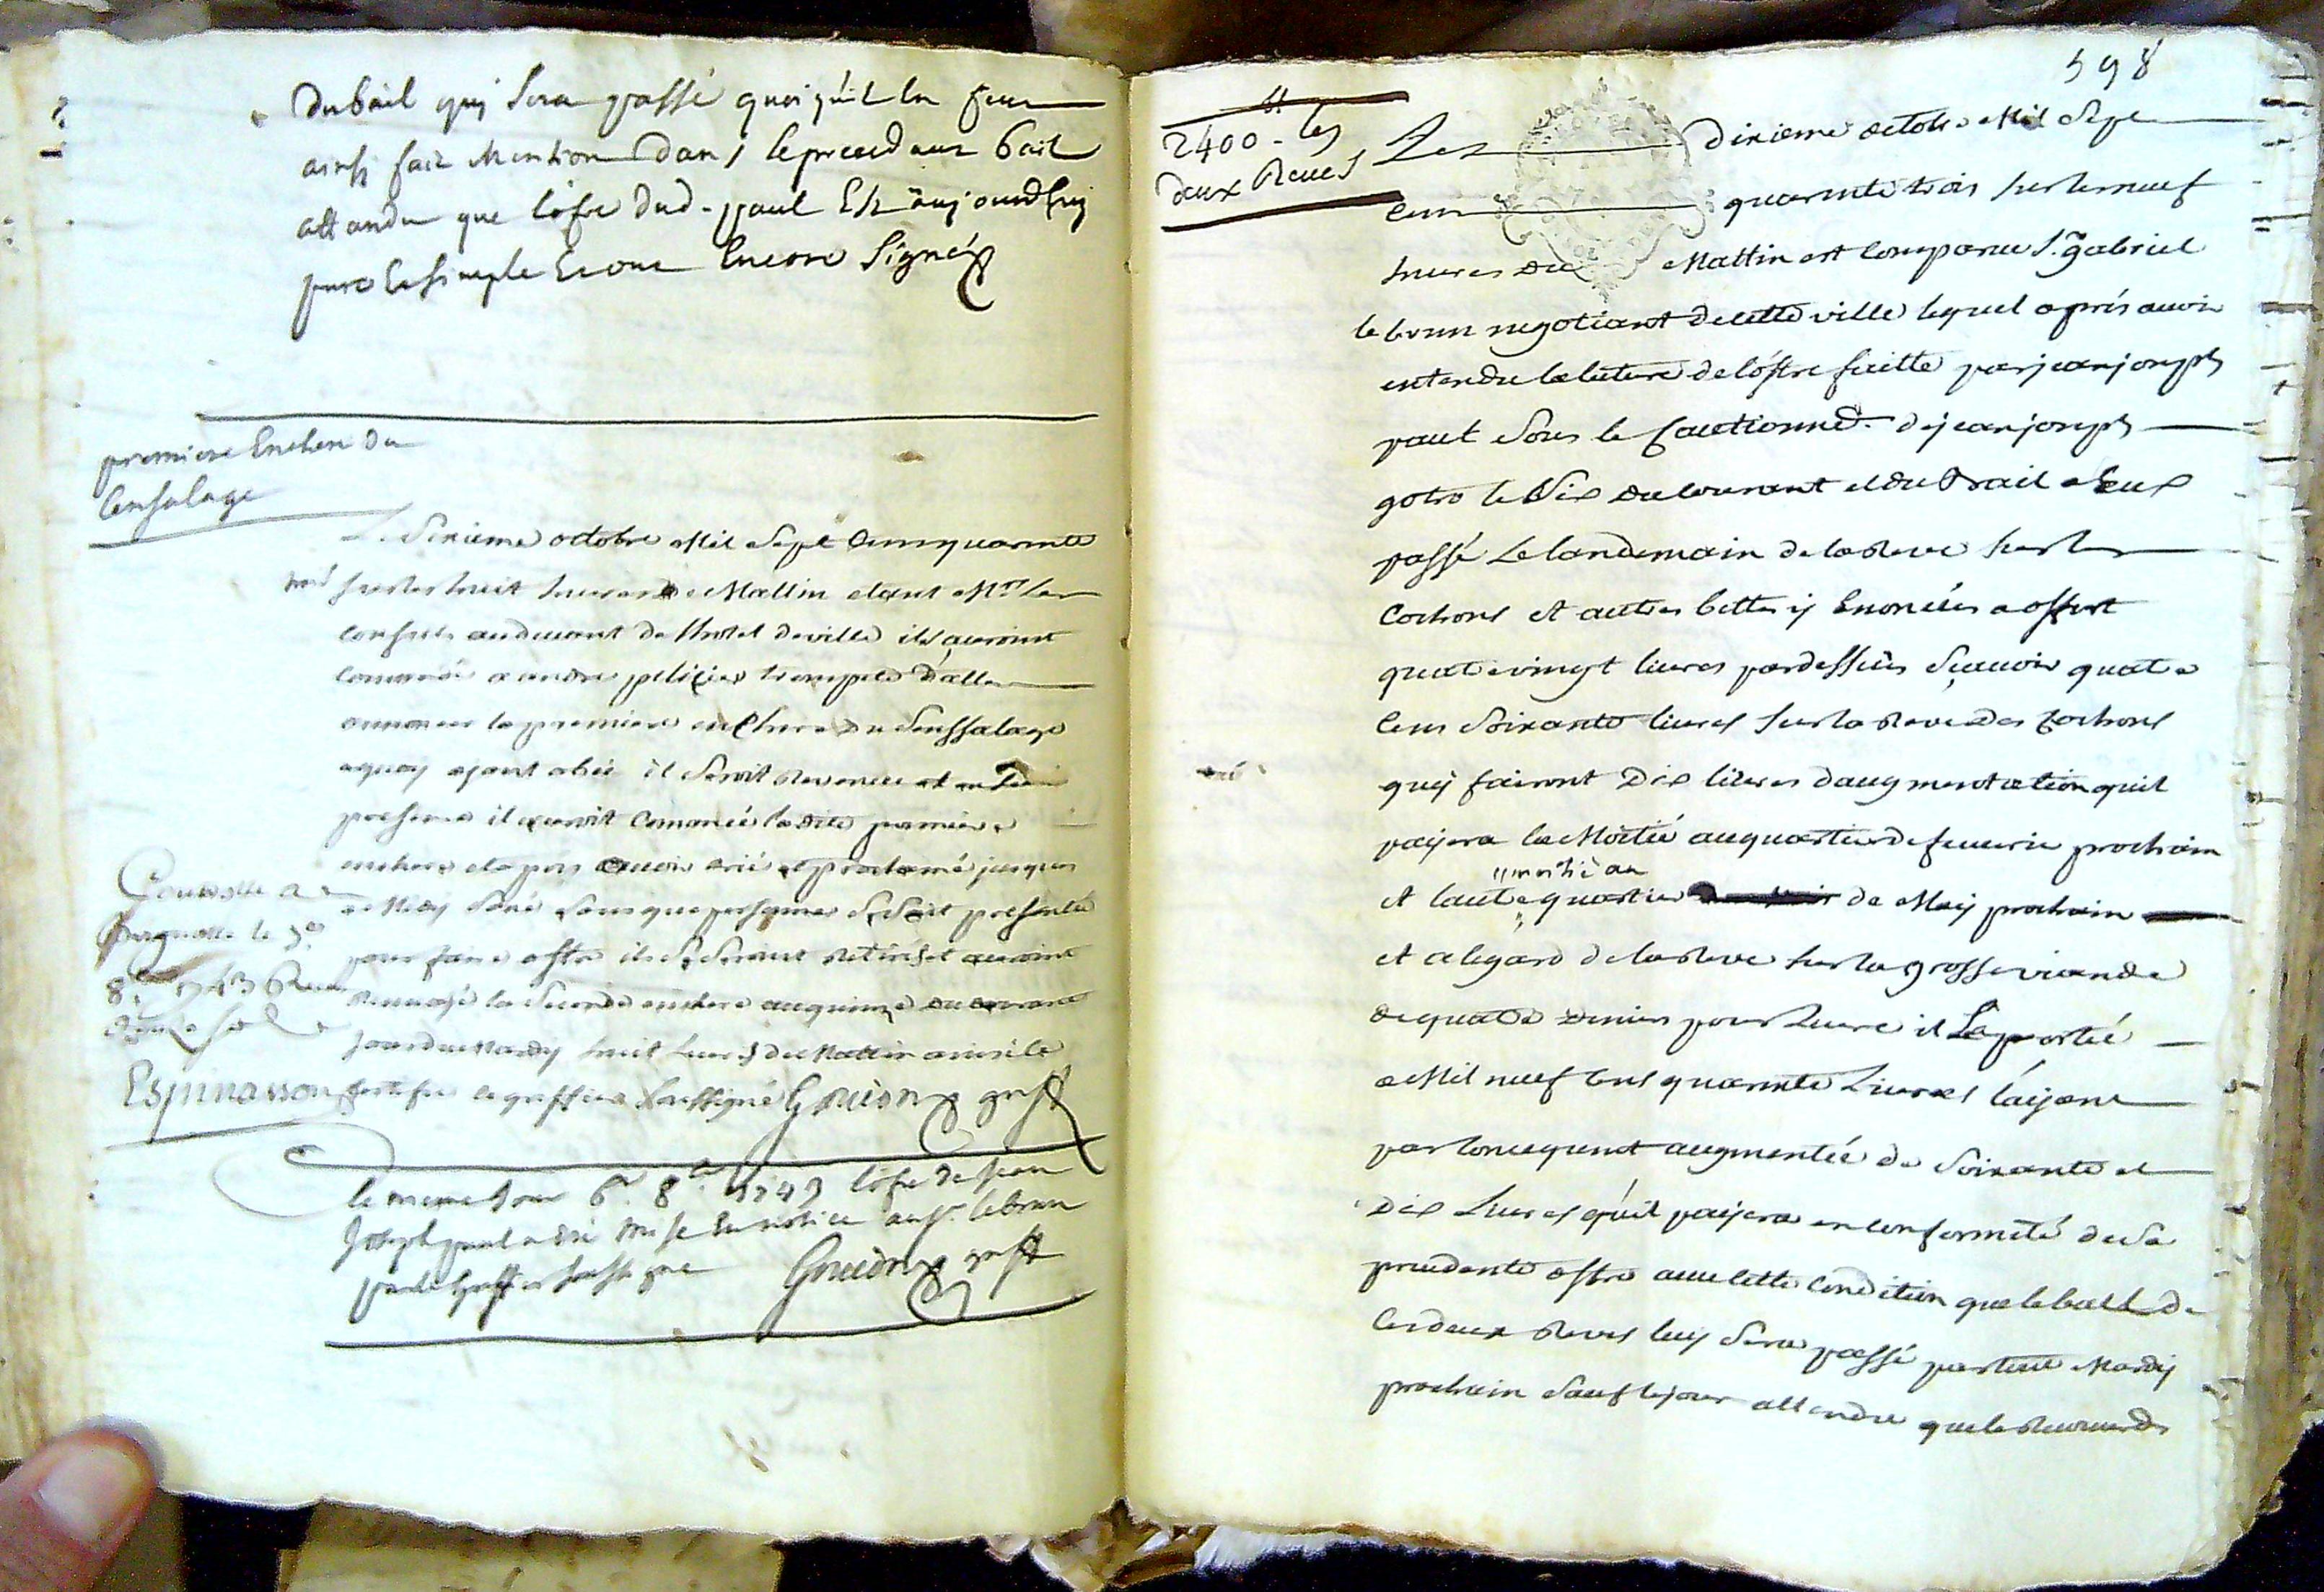 du bail quj sera passé quoi qu'il en feut
ainsy fait mention dans le precedant bail
attandu que l'ofre dud. paul est aujourdhuy
pure et simple et ont encore signé
premiere Enchere du
Censalage
Le Sixieme octobre Mil Sept Cens quarante
trois sur les huit heures de Mattin etant Mrs les
consuls au devant de l'hotel de ville ils auroint
commandé a andre pelicier trompete d'aller
annoncer la premiere enchere du Senssalage
a quoy ajant obeï il seroit revenu et en leur
presence il auroit comancé la dite premiere
enchere et apres avoir crié et proclamé jusques
a Midy sans que personne se soit presenté
pour faire offre ils se seroint retirés et auroint
renvoyé la seconde enchere au quinze du courant
jour du Mardy huit heures du Mattin ainsi le
certifie le greffier soussigné Gouidon greff
Controllé a
le 9e
8bre 1743 Reçu
douze sols
Espinasson
le meme jour 6e. 8bre 1743 l'ofre de jean
Joseph paul a été mise en notice au sr. lebrun
par le Greffier soussigné Gouidon greff
598
2400 - les
deux Reves
Le dixieme octobre Mil Sept
Cens quarante trois sur les neuf
heures du Mattin est comparu Sr. gabriel
lebrun negotiant de cette ville lequel aprés avoir
entendu la lecture de l'offre faitte par jean joseph
paul sous le cautionnet. de jean joseph
gotro le Six du courant et du Bail a eux
passé le landemain de la Reve sur les
Cochons et autres bettes y Enoncées a offert
quatre vingt livres pardessus sçavoir quatre
Cens soixante livres sur la Reve des Cochons
quy fairont Dix livres d'augmentation quil
payera la Moitié au quartier de fevrier prochain
"moitié au
et l'autre quartier de May prochain
et a legard de la Reve sur la grosse viande
de quatre deniers pour livre il l'a portée
a Mil neuf cens quarante Livres l'ajant
par consequent augmentée de soixante et
Dix livres qu'il payera en conformité de sa
precedente offre avec cette condition que le bail de
Ces deux Reves luy sera passé par tout Mardy
prochain sauf le jour attendu que le